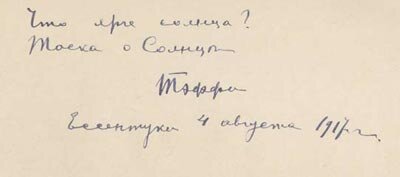 Что ярче солнца?
Тоска о Солнцѣ
Тэффи
Ессентуки 4 августа 1917 г.